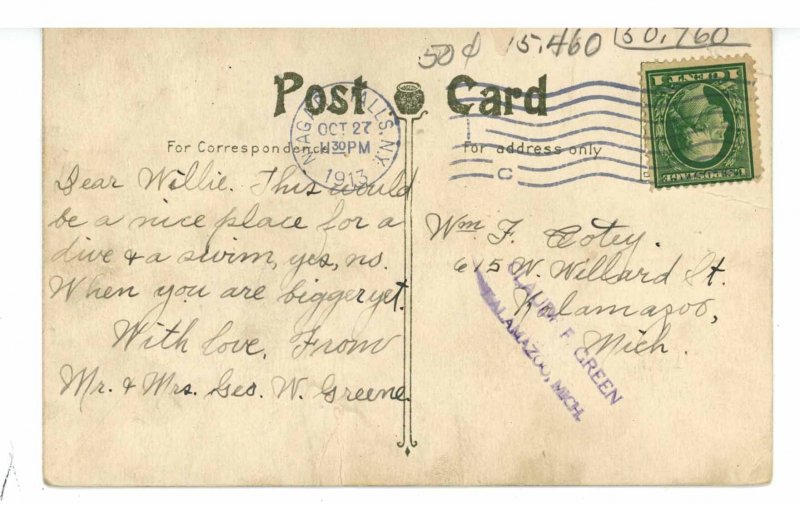 50¢ 15,460 50,760
Post Card
NIAGARA FALLS, N.Y.
OCT 27
4 30 PM
1913
For Correspondence
For address only
C
Dear Willie. This would
be a nice place for a
dive & a swim, yes, no.
When you are bigger yet.
With love. From
Mr. & Mrs. Geo. W. Greene.
Wm F. Cotey.
615 W. Willard St.
Kalamazoo,
Mich.
CLAUDE F. GREEN
KALAMAZOO, MICH.